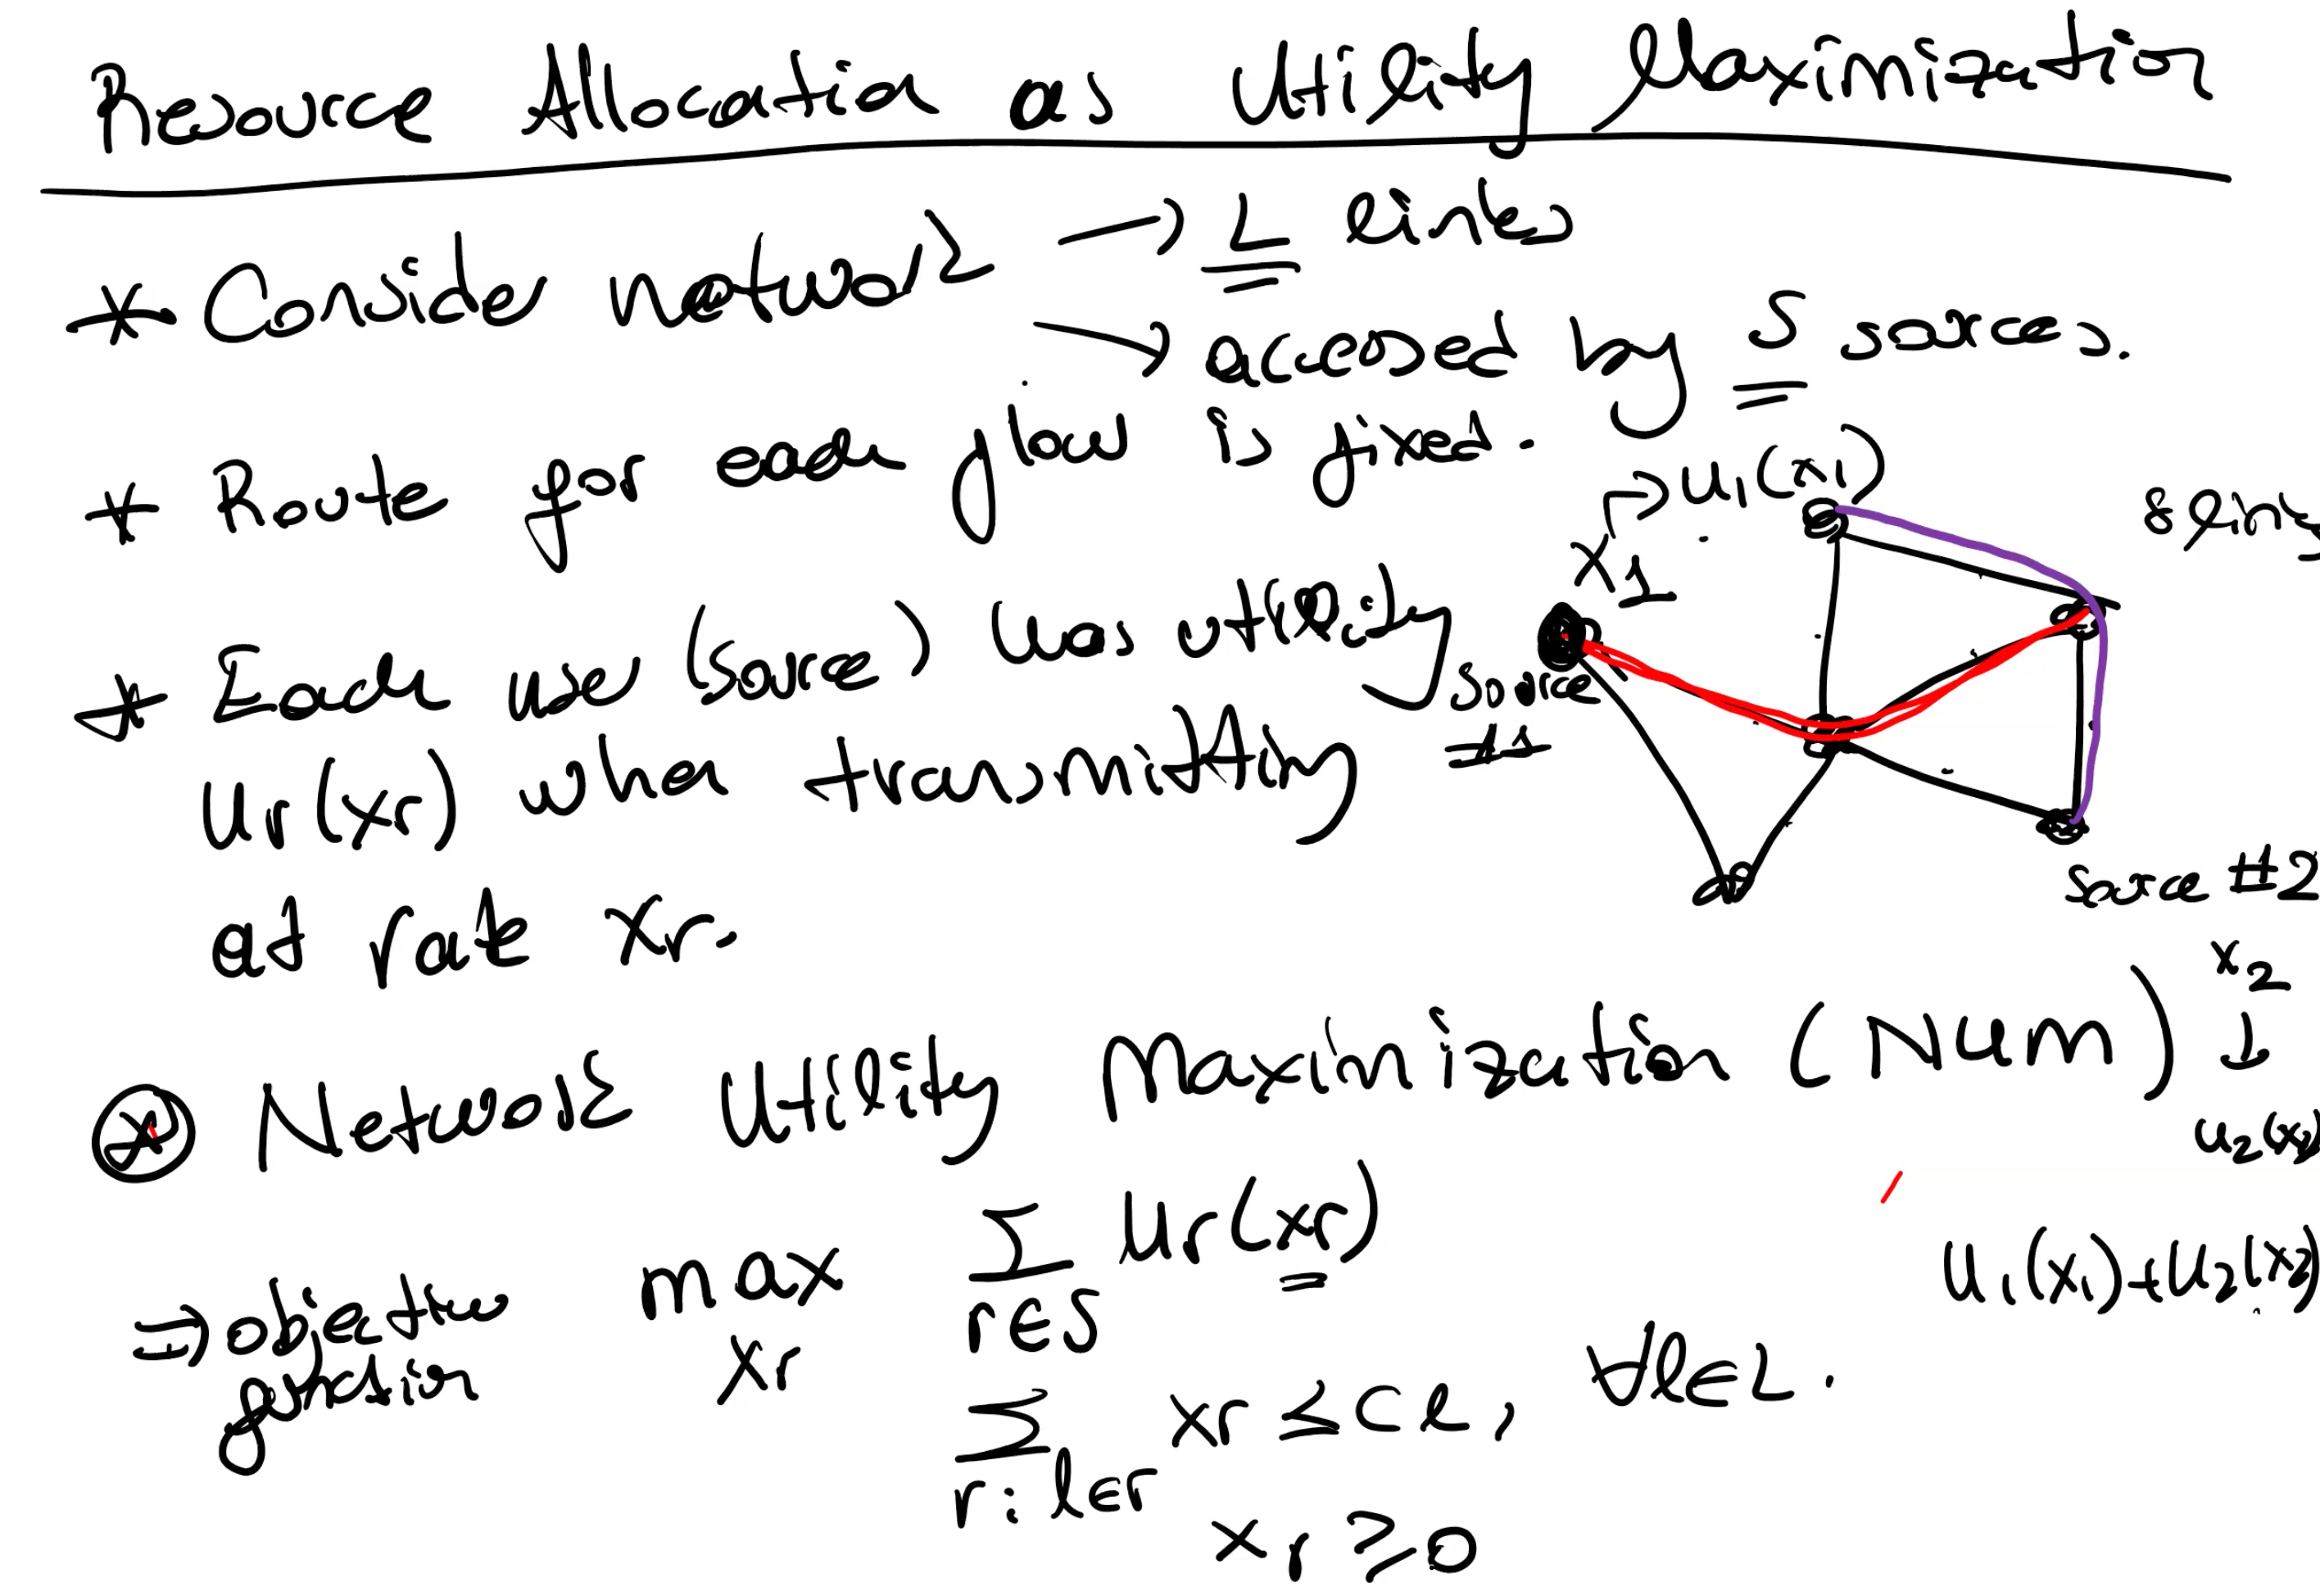 Resource Allocation as Utility Maximization
* Consider network → L links
→ accessed by S sources.
* Route for each flow is fixed.
→ U₁(x₁)
8 links
x₁
* Each user (source) has utility
Source #1
Uᵣ(xᵣ) when transmitting
at rate xᵣ.
Source #2
x₂
↓
U₂(x₂)
⊛ Network Utility Maximization (NUM)
⇒ objective function
max Σ Uᵣ(xᵣ)
xᵣ r∈S
U₁(x₁)+U₂(x₂)
Σ xᵣ ≤ Cℓ, ∀ℓ∈L.
r:ℓ∈r
xᵣ ≥ 0